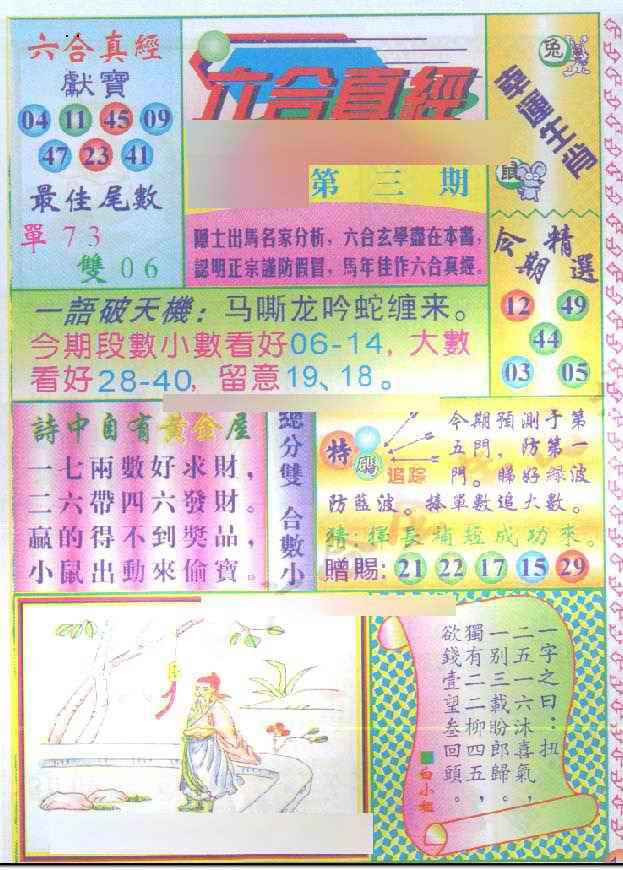 六合真經
獻寶
04 11 45 09
47 23 41
最佳尾數
單 7 3
雙 0 6
六合真經
第三期
隱士出馬名家分析，六合玄學盡在本書，
認明正宗謹防假冒，馬年佳作六合真經。
兔
幸運生肖
鼠
今期精選
12 49
44
03 05
一語破天機：马嘶龙吟蛇缠来。
今期段數小數看好06-14，大數
看好28-40，留意19、18。
詩中自有黃金屋
一七兩數好求財，
二六帶四六發財。
贏的得不到獎品，
小鼠出動來偷寶。
分雙 合數小
特碼
追踪
今期預測于第
五門，防第一
門。睇好綠波
防藍波。捧單數追大數。
猜：揮長補短成功來。
贈賜：21 22 17 15 29
一字之曰：扭
二五一六沐喜氣，
一别三載盼郎歸。
獨有二二柳四五，
欲錢壹望叁回頭。
白小姐